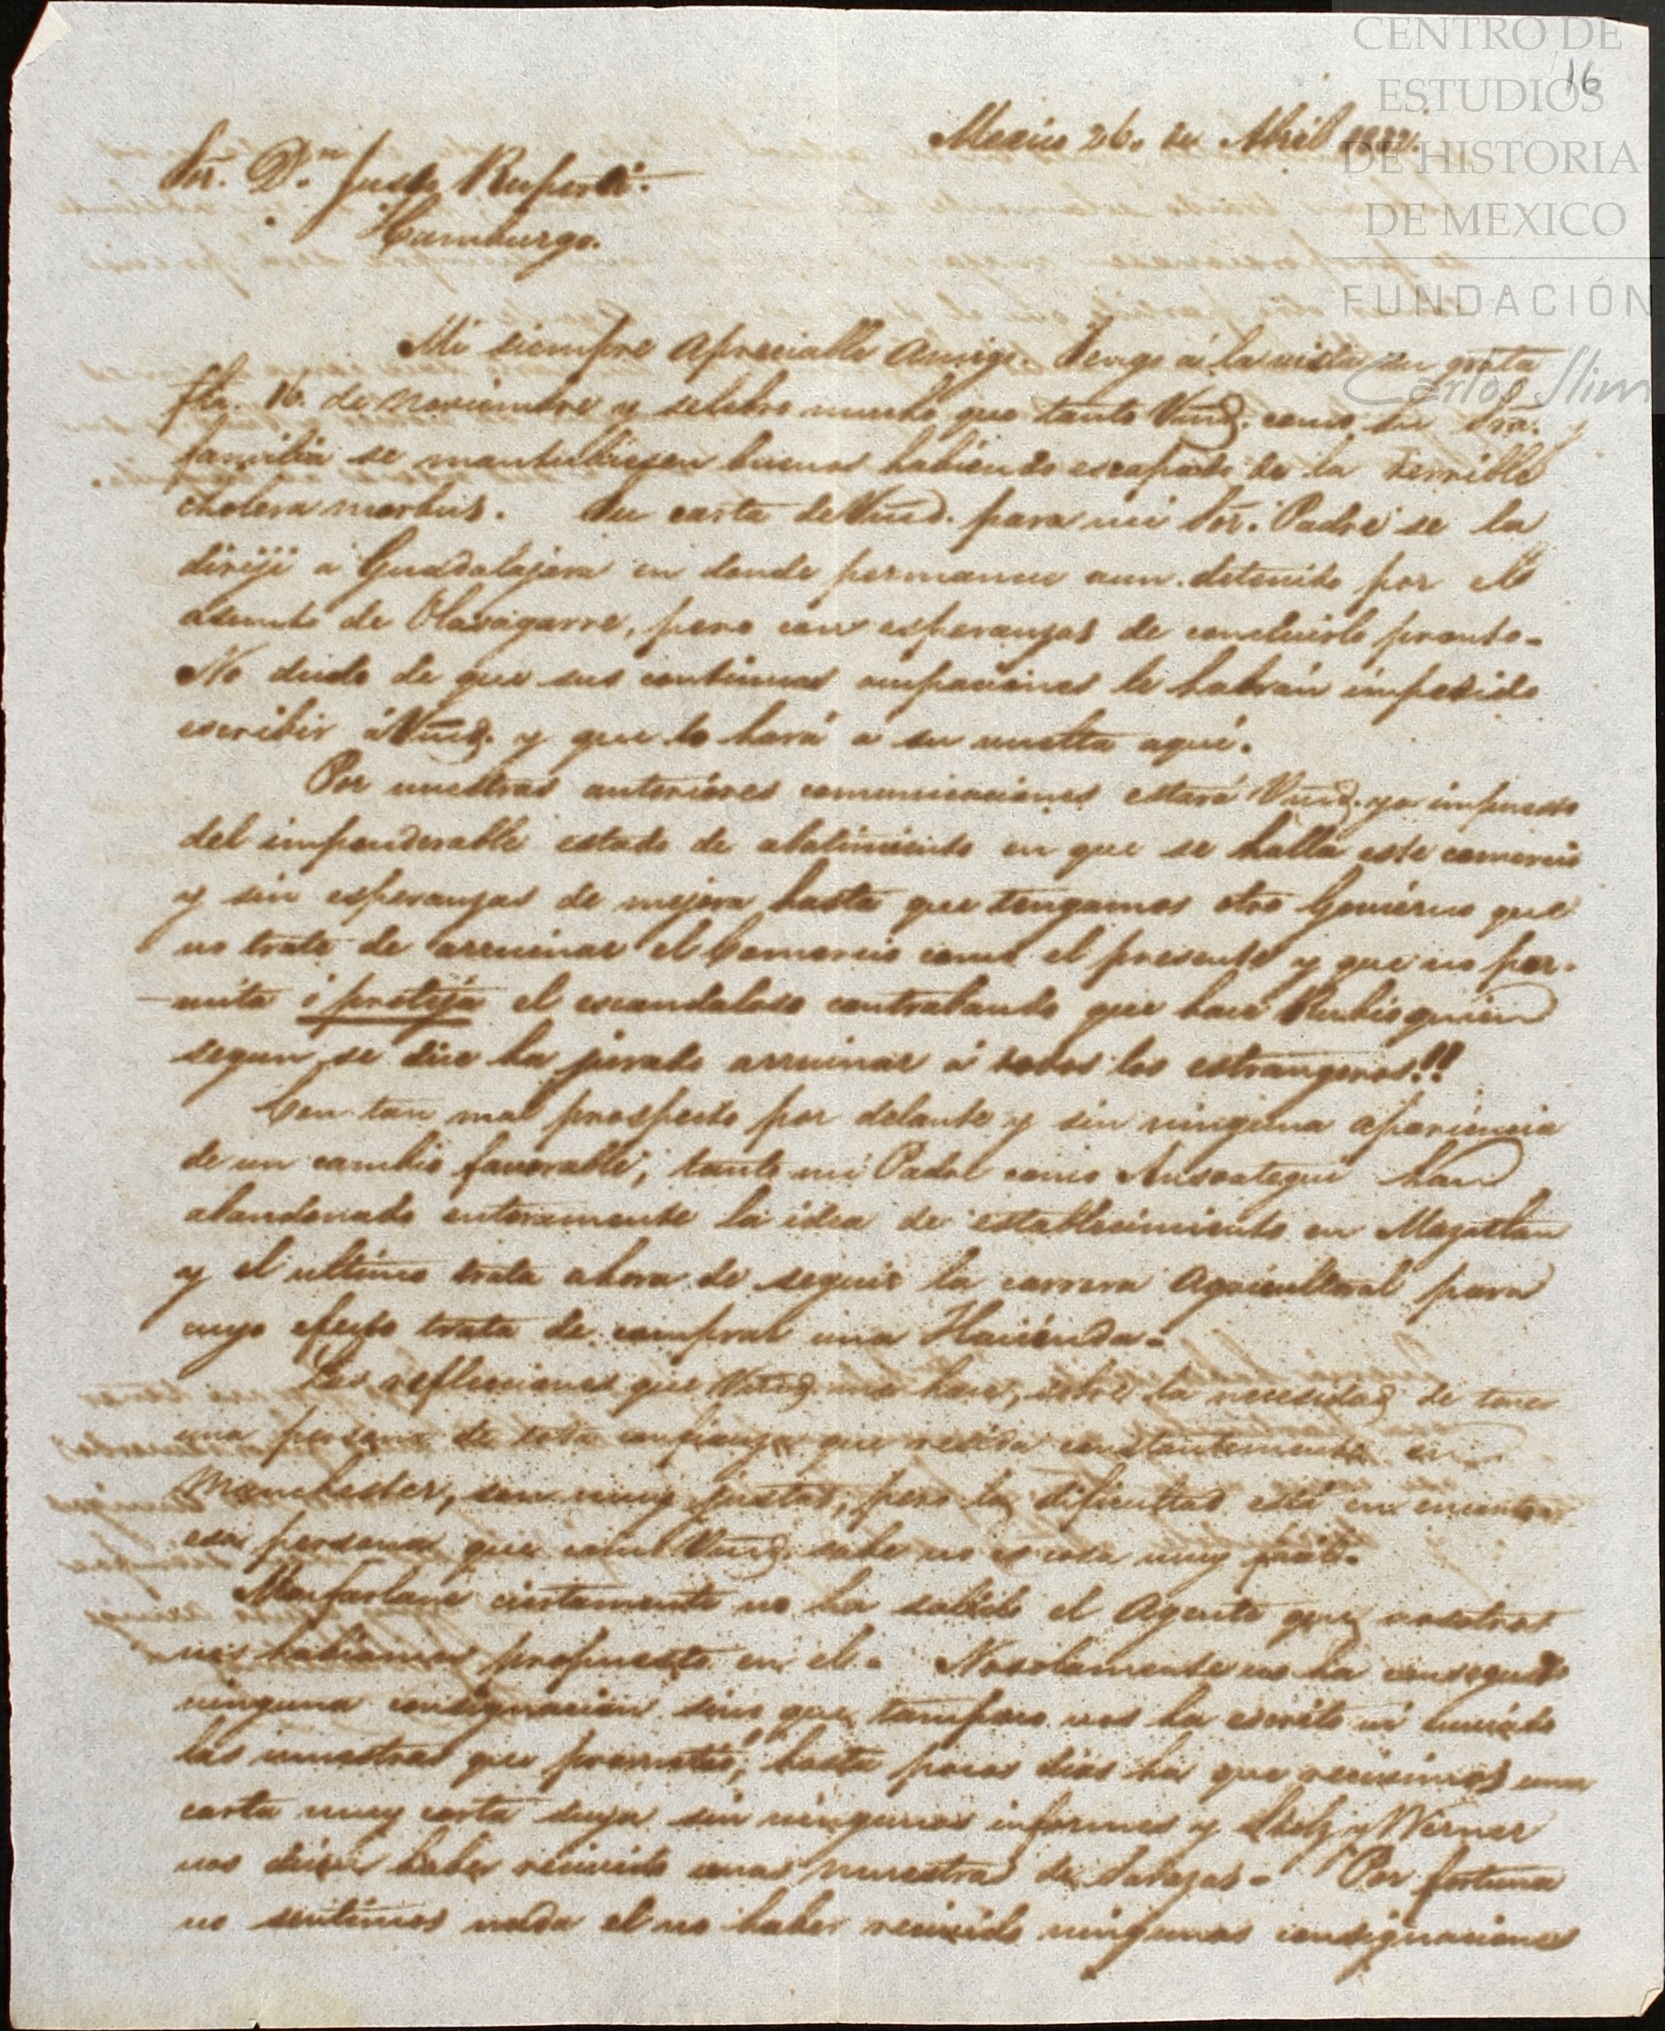 CENTRO DE
ESTUDIOS
DE HISTORIA
DE MEXICO
FUNDACIÓN
Carlos Slim
16
Mexico 26. de Abril
Sor. Dn. Justo Ruperti.
Hamburgo.
Mi siempre apreciable amigo. Tengo á la vista su grata
fha. 16. de noviembre y celebro mucho que tanto Vmd. como su Sra.
familia se mantubiesen buenos habiendo escapado de la terrible
cholera morbus. Su carta de Vmd. para mi Sor. Padre se la
diriji a Guadalajara en donde permanece aun detenido por el
asunto de Olasagarre, pero con esperanzas de concluirlo pronto.
No dudo de que sus continuas ocupaciones le habrán impedido
escribir á Vmd. y que lo hará a su vuelta aqui.
Por nuestras anteriores comunicaciones estará Vmd. ya impuesto
del imponderable estado de abatimiento en que se halla este comercio
y sin esperanzas de mejora hasta que tengamos otro Govierno que
no trate de arruinar el Comercio como el presente y que no per-
mita ó proteja el escandaloso contrabando que hace Rubio quien
segun se dice ha jurado arruinar á todos los estrangeros!!
Con tan mal prospecto por delante y sin ninguna apariencia
de un cambio favorable, tanto mi Padre como Ansoategui han
abandonado enteramente la idea de establecimiento en Mazatlan
y el ultimo trata ahora de seguir la carrera agricultural para
cuyo efecto trata de comprar una Hacienda.
Las reflecciones que Vmd. me hace, sobre la necesidad de tener
una persona de toda confianza que resida constantemente en
Manchester, son muy justas, pero la dificultad está en encontrar
esa persona que como Vmd. sabe no es cosa muy facil.
Macfarlane ciertamente no ha salido el Agente que nosotros
nos habiamos propuesto en el. No solamente no ha conseguido
ninguna consignacion sino que tampoco nos ha escrito ni enviado
las muestras que prometió, hasta pocos dias ha que recivimos una
carta muy corta suya sin ningunos informes y y Werner
nos dicen haber recivido unas muestras de Sarazas. Por fortuna
no sentimos nada el no haber recivido ningunas consignaciones